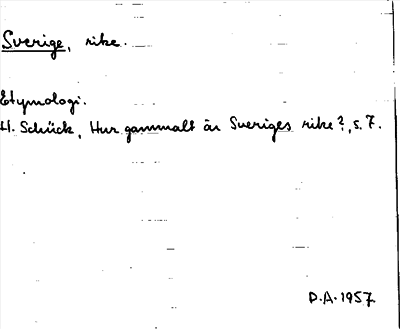 Sverige, rike.
Etymologi.
H. Schück, Hur gammalt är Sveriges rike?, s. 7.
D.A. 1957